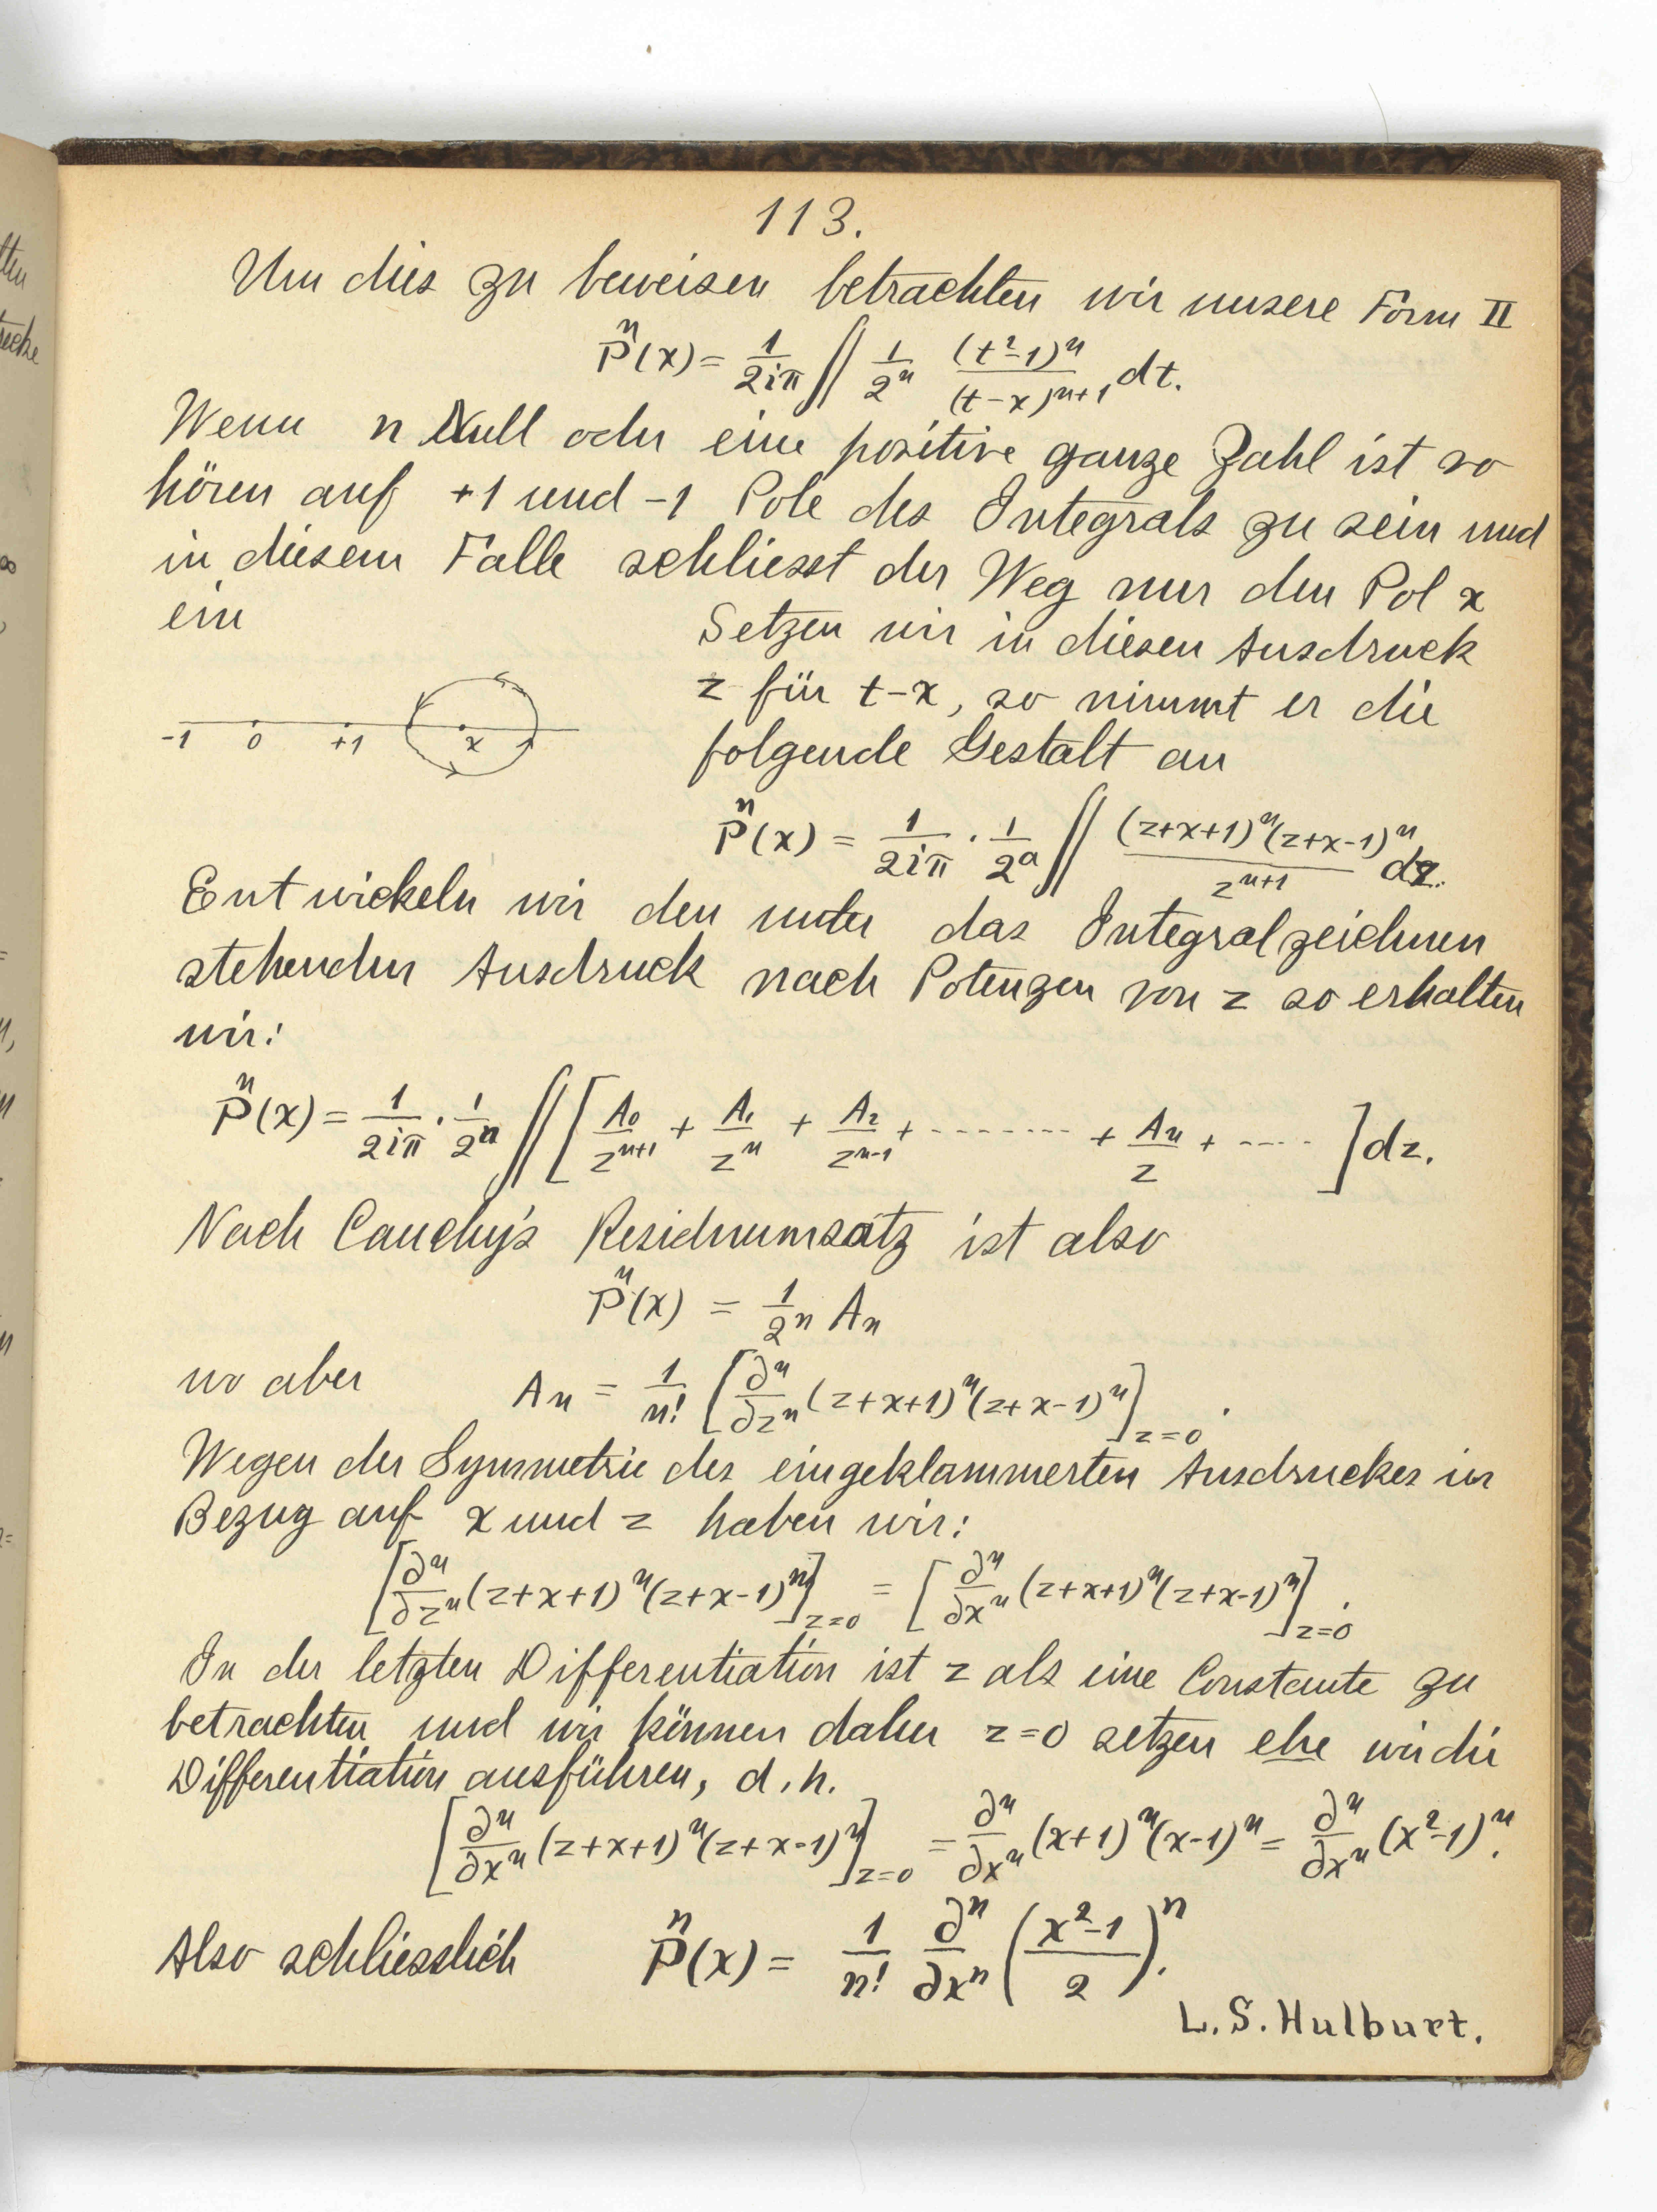 113.
Um dies zu beweisen betrachten wir unsere Form II
P̈ⁿ(x) = 1/2iπ ∫∫ 1/2ⁿ (t²-1)ⁿ/(t-x)ⁿ⁺¹ dt.
Wenn n Null oder eine positive ganze Zahl ist so
hören auf +1 und -1 Pole des Integrals zu sein und
in diesem Falle schliesst der Weg nur den Pol x
ein
Setzen wir in diesen Ausdruck
z für t-x, so nimmt er die
folgende Gestalt an
-1 0 +1 x
Pⁿ(x) = 1/2iπ · 1/2ⁿ ∫∫ (z+x+1)ⁿ(z+x-1)ⁿ/zⁿ⁺¹ dz.
Entwickeln wir den unter das Integralzeichnen
stehenden Ausdruck nach Potenzen von z so erhalten
wir:
Pⁿ(x) = 1/2iπ · 1/2ⁿ ∫∫ [A₀/zⁿ⁺¹ + A₁/zⁿ + A₂/zⁿ⁻¹ + -------- + Aₙ/z + ---- ] dz.
Nach Cauchy's Residuumsatz ist also
Pⁿ(x) = 1/2ⁿ Aₙ
wo aber Aₙ = 1/n! [∂ⁿ/∂zⁿ (z+x+1)ⁿ(z+x-1)ⁿ]z=0.
Wegen der Symmetrie des eingeklammerten Ausdruckes in
Bezug auf x und z haben wir:
[∂ⁿ/∂zⁿ (z+x+1)ⁿ(z+x-1)ⁿ]z=0 = [∂ⁿ/∂xⁿ (z+x+1)ⁿ(z+x-1)ⁿ]z=0.
In der letzten Differentiation ist z als eine Constante zu
betrachten und wir können daher z=0 setzen ehe wir die
Differentiation ausführen, d.h.
[∂ⁿ/∂xⁿ (z+x+1)ⁿ(z+x-1)ⁿ]z=0 = ∂ⁿ/∂xⁿ (x+1)ⁿ(x-1)ⁿ = ∂ⁿ/∂xⁿ (x²-1)ⁿ.
Also schliesslich Pⁿ(x) = 1/n! ∂ⁿ/∂xⁿ ((x²-1)/2)ⁿ.
L.S. Hulburt.